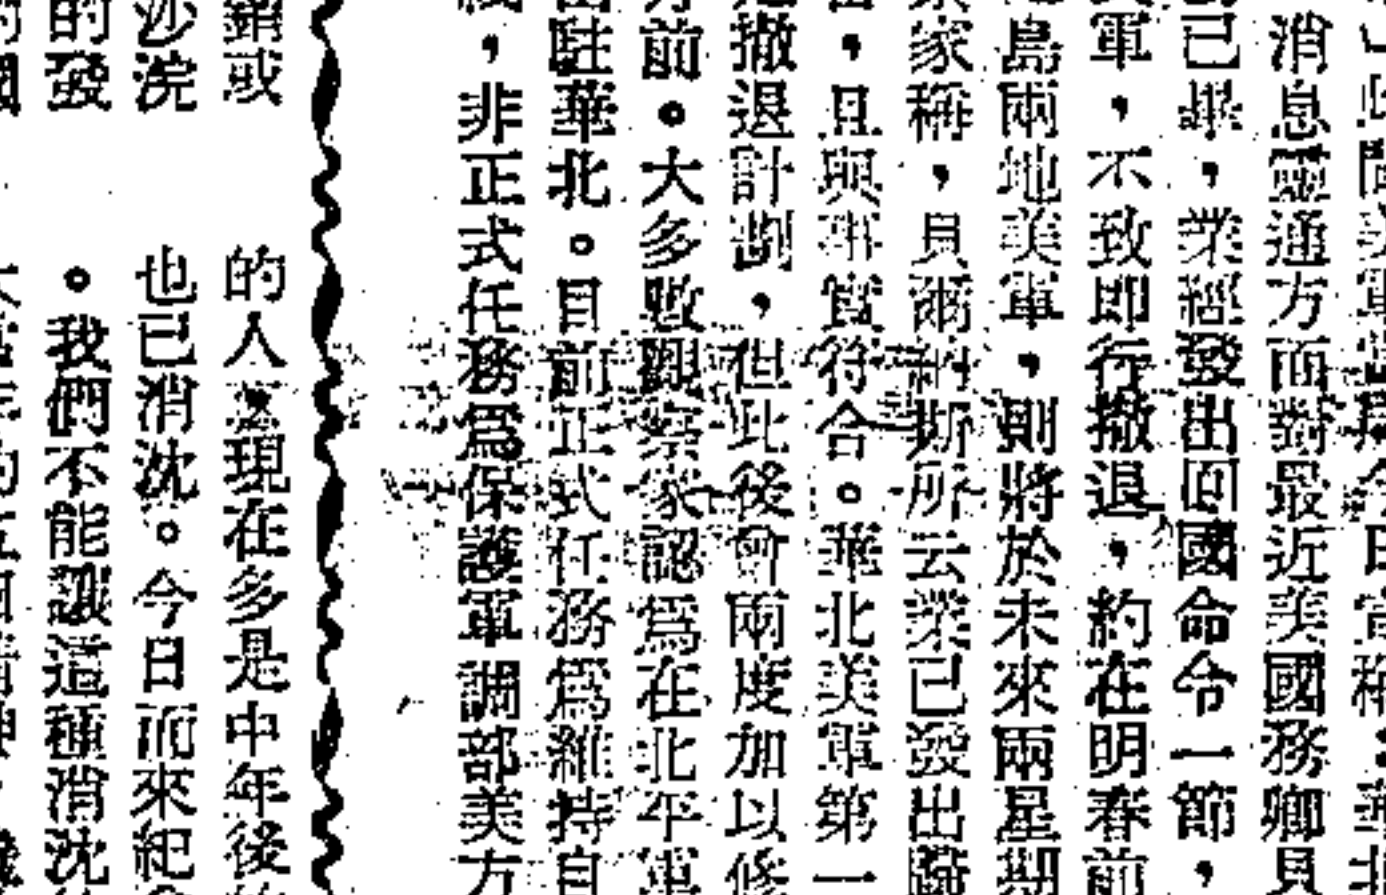 消息靈通方面對最近美國務卿貝
已畢，業經發出回國命令一節，
軍，不致即行撤退，約在明春前
島兩地美軍，則將於未來兩星期
家稱，貝爾納斯所云業已發出
，且與事實符合。華北美軍第一
撤退計劃，但此後會兩度加以修
前。大多數觀察家認爲在北平軍
駐華北。目前正式任務爲維持自
，非正式任務爲保護軍調部美方
銷或
的人，現在多是中年後
沙浣
也已消沈。今日而來紀
的發
。我們不能讓這種消沈